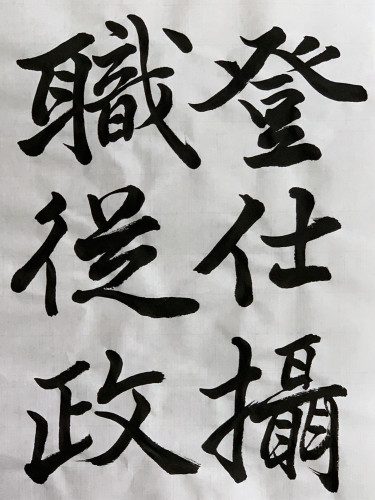 登仕攝
職從政